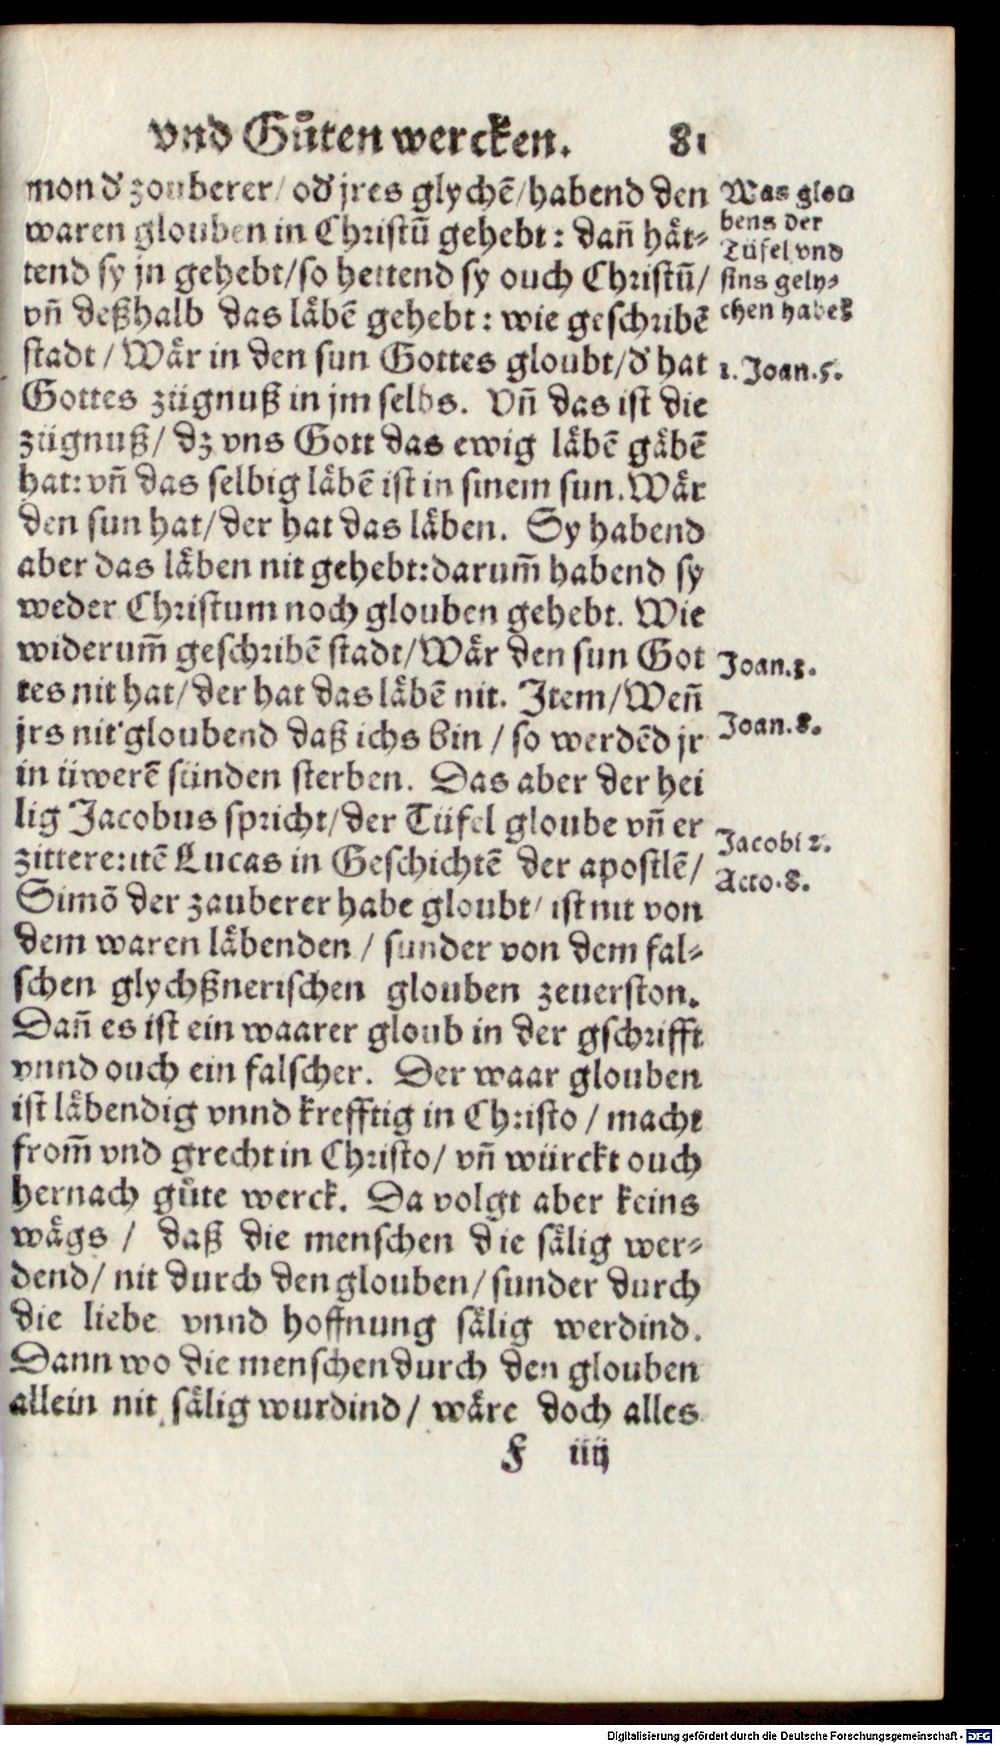 vnd Gůten wercken. 81
mon d' zouberer/ od' jres glychē/habend den
waren glouben in Christū gehebt: dañ hät⸗
tend sy jn gehebt/so hettend sy ouch Christū/
vñ deßhalb das läbē gehebt: wie geschribē
stadt/ Wär in den sun Gottes gloubt/d' hat
Gottes zügnuß in jm selbs. Vñ das ist die
zügnuß/ dz vns Gott das ewig läbē gäbē
hat: vñ das selbig läbē ist in sinem sun. Wär
den sun hat/der hat das läben. Sy habend
aber das läben nit gehebt: darum̄ habend sy
weder Christum noch glouben gehebt. Wie
widerum̄ geschribē stadt/Wär den sun Got
tes nit hat/der hat das läbē nit. Item/Weñ
jrs nit gloubend daß ichs bin/ so werdēd jr
in üwerē sünden sterben. Das aber der hei
lig Jacobus spricht/der Tüfel gloube vñ er
zittere: itē Lucas in Geschichtē der apostlē/
Simō der zauberer habe gloubt/ ist nit von
dem waren läbenden/ sunder von dem fal⸗
schen glychßnerischen glouben zeuerston.
Dañ es ist ein waarer gloub in der gschrifft
vnnd ouch ein falscher. Der waar glouben
ist läbendig vnnd krefftig in Christo/ macht
from̄ vnd grecht in Christo/ vñ würckt ouch
hernach gůte werck. Da volgt aber keins
wägs/ daß die menschen die sälig wer⸗
dend/ nit durch den glouben/sunder durch
die liebe vnnd hoffnung sälig werdind.
Dann wo die menschen durch den glouben
allein nit sälig wurdind/ wäre doch alles
F iiij
Was glou
bens der
Tüfel vnd
sins gely⸗
chen habe
1. Joan.5.
Joan.3.
Joan.8.
Jacobi 2.
Acto.8.
Digitalisierung gefördert durch die Deutsche Forschungsgemeinschaft - DFG